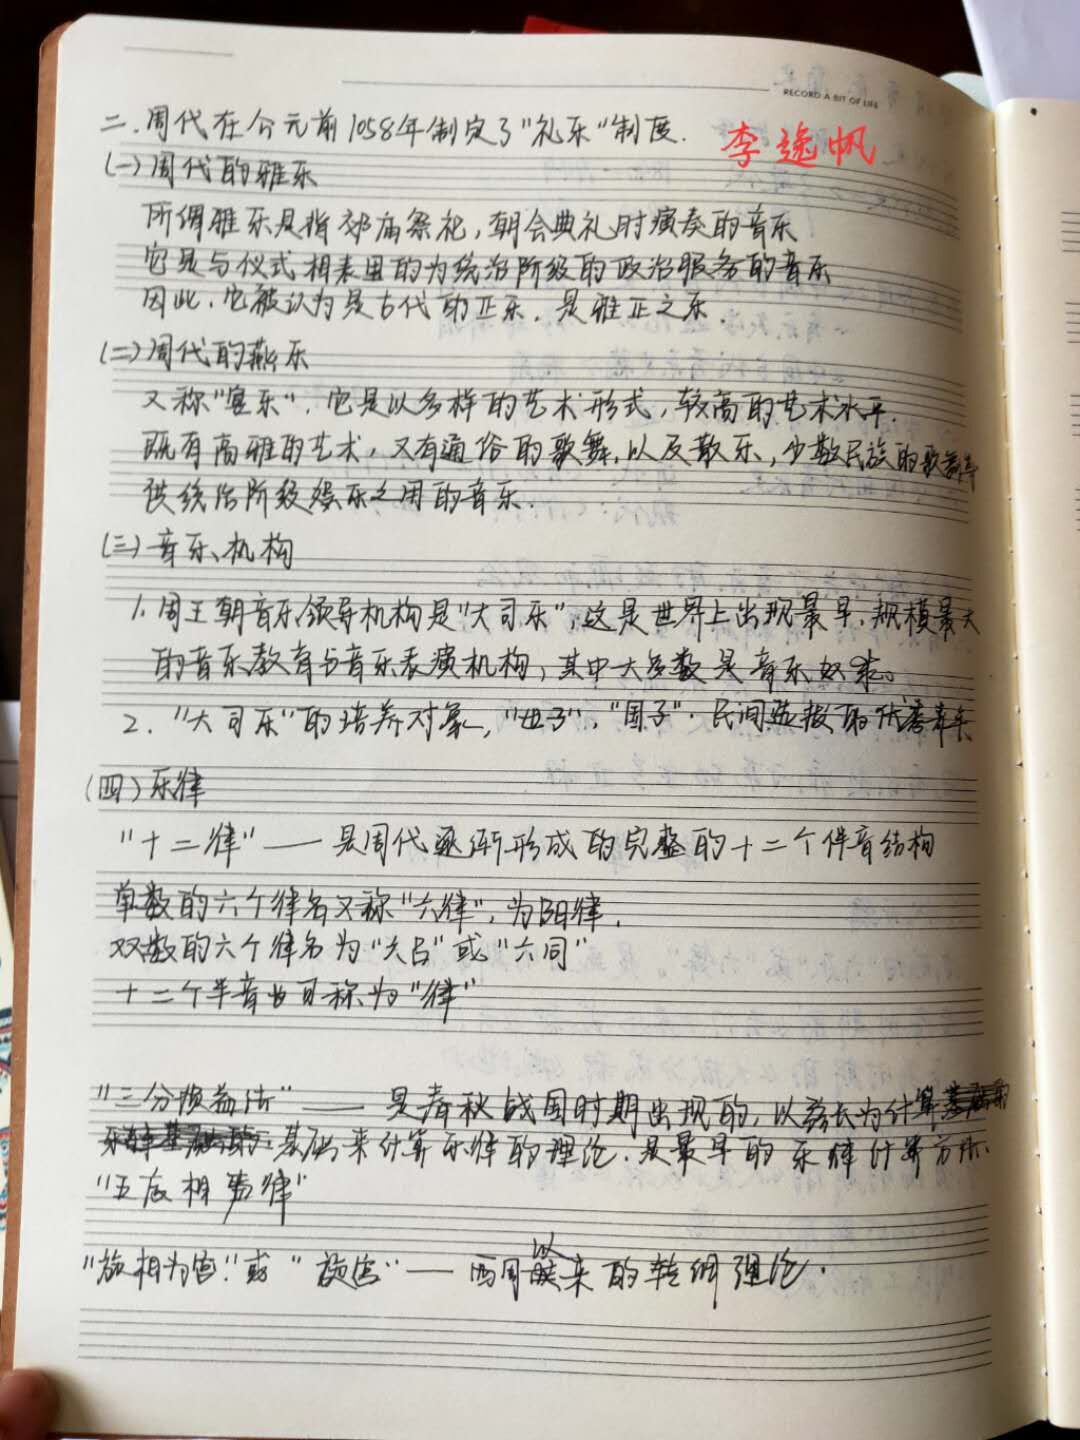 RECORD A BIT OF LIFE
二.周代在公元前1058年制定了"礼乐"制度.
李逸帆
(一)周代的雅乐
所谓雅乐是指郊庙祭祀,朝会典礼时演奏的音乐
它是与仪式相表里的为统治阶级的政治服务的音乐
因此.它被认为是古代的正乐.是雅正之乐.
(二)周代的燕乐
又称"宴乐".它是以多样的艺术形式,较高的艺术水平.
既有高雅的艺术,又有通俗的歌舞,以及散乐,少数民族的歌舞等
供统治阶级娱乐之用的音乐.
(三)音乐机构
1.周王朝音乐领导机构是"大司乐",这是世界上出现最早.规模最大
的音乐教育与音乐表演机构,其中大多数是音乐奴隶。
2."大司乐"的培养对象,"世子","国子".民间选拔的优秀青年
(四)乐律
"十二律"——是周代逐渐形成的完整的十二个律音结构
单数的六个律名又称"六律",为阳律.
双数的六个律名为"六吕"或"六同"
十二个半音也可称为"律"
"三分损益法"——是春秋战国时期出现的,以弦长为计算
基础来计算乐律的理论.是最早的乐律计算方法.
"五度相生律"
"旋相为宫"或"旋宫"——西周以来的转调理论.